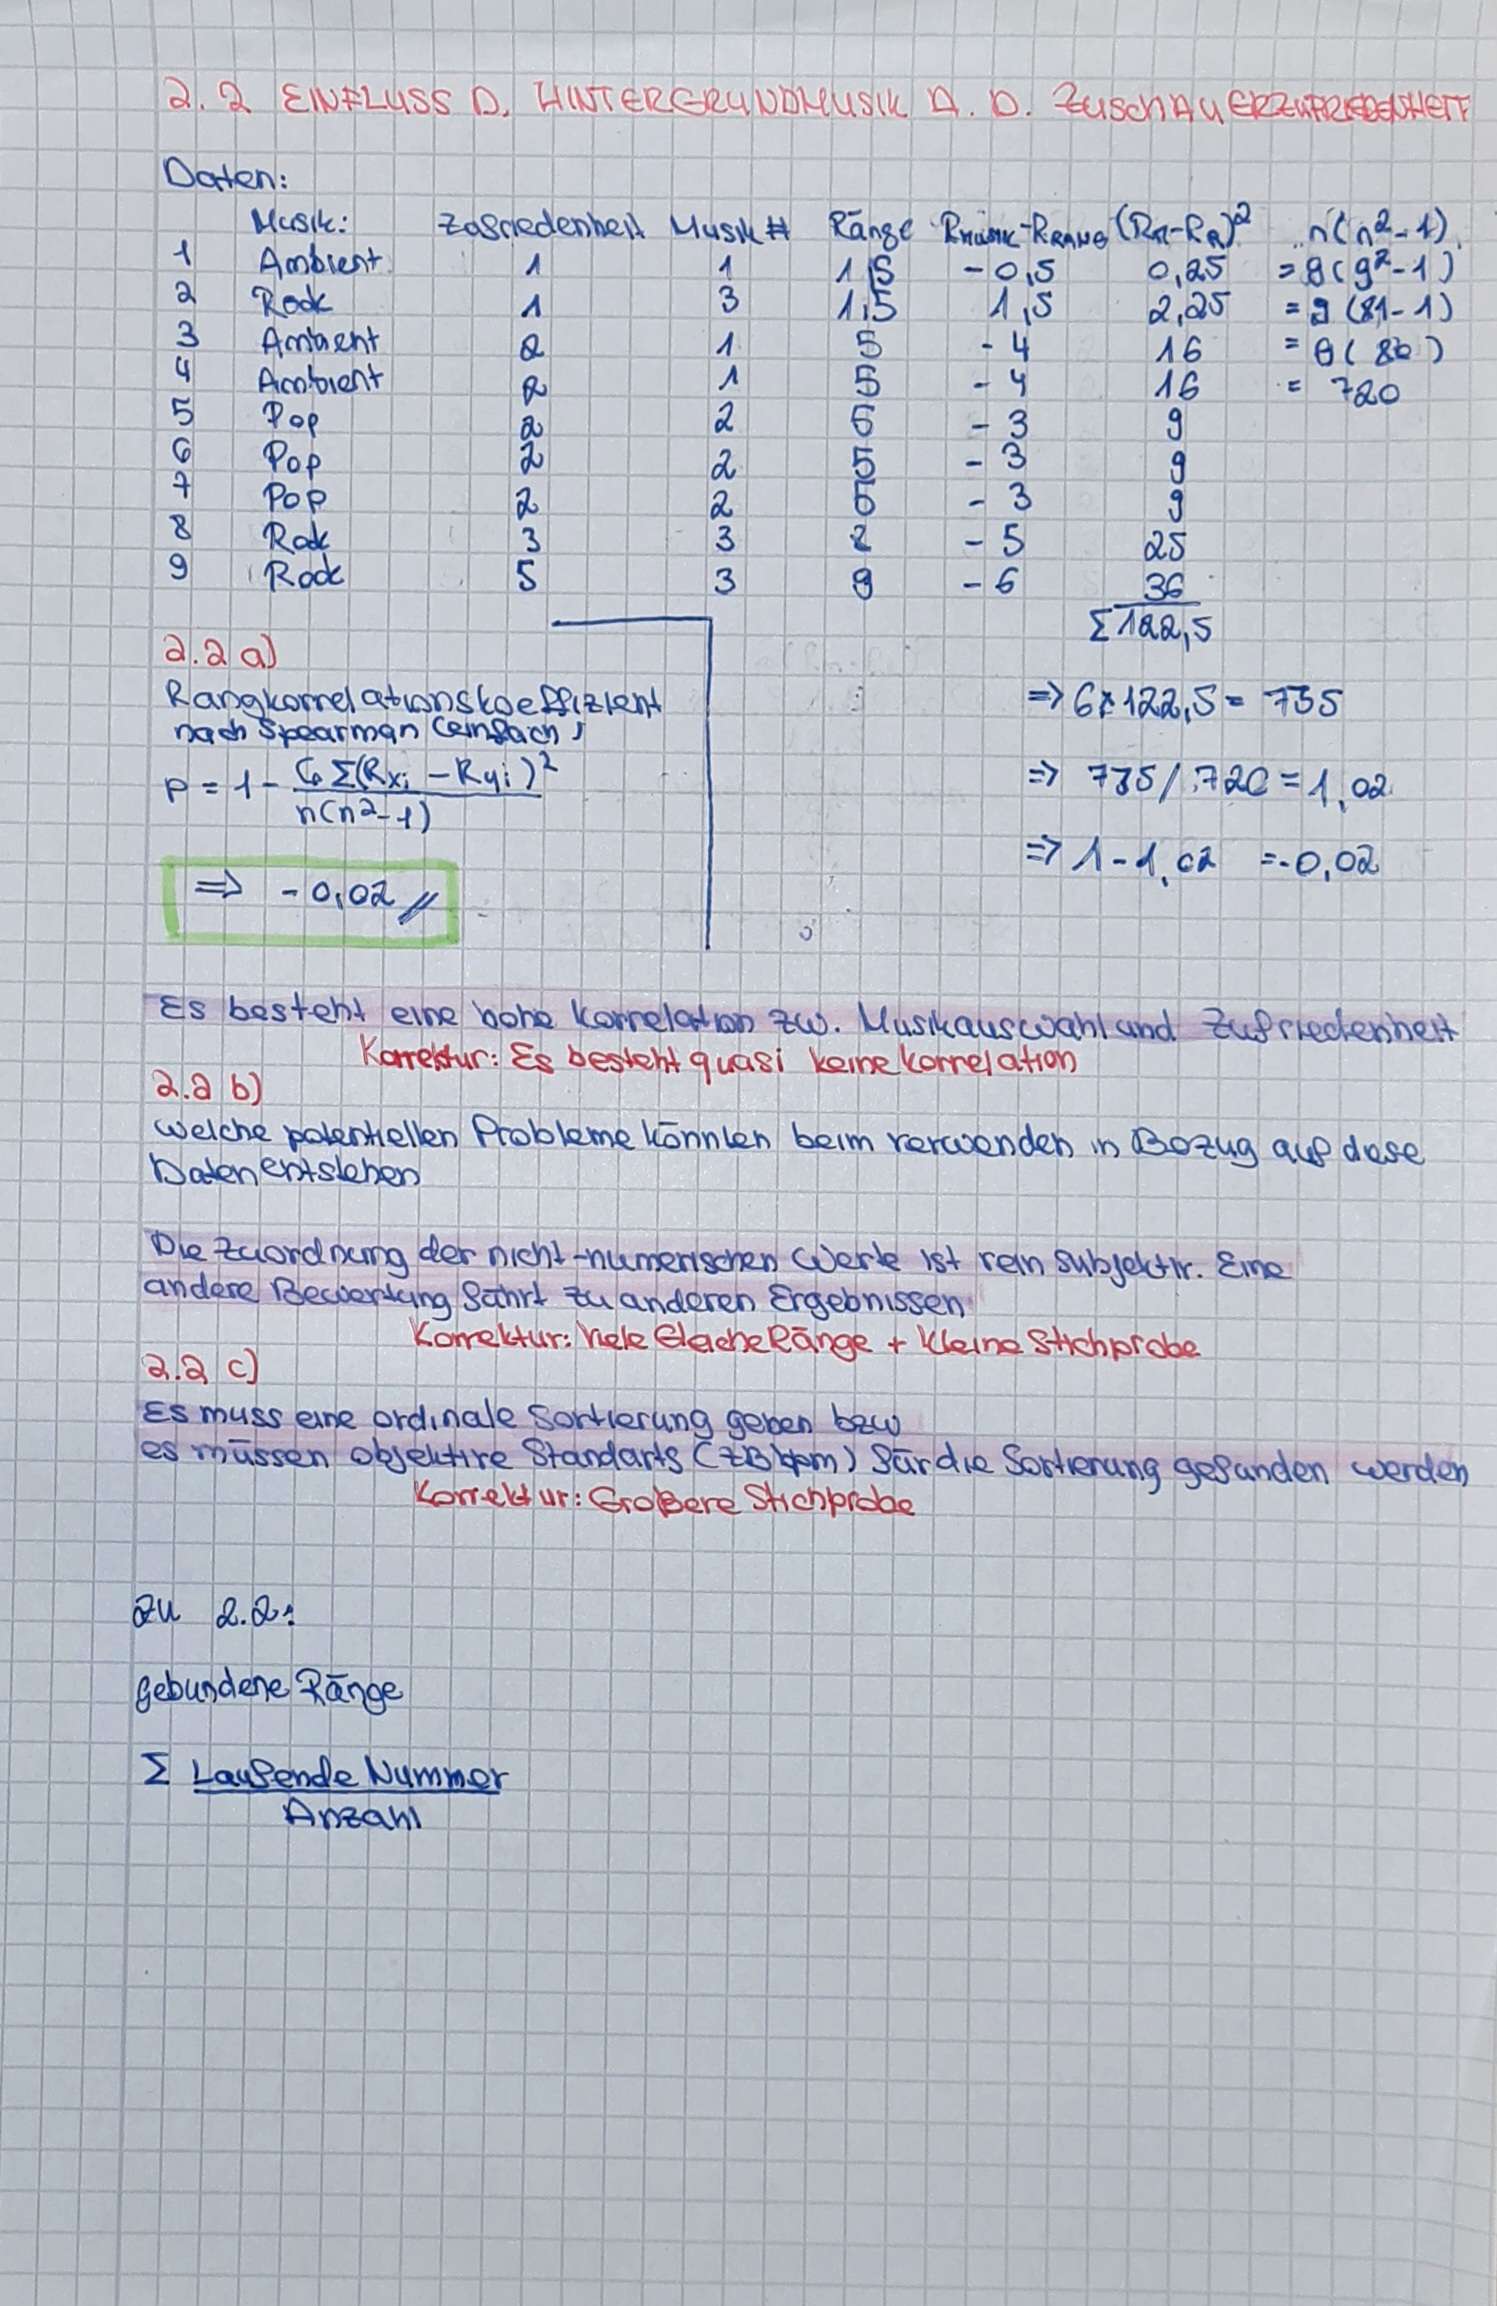 2.2 EINFLUSS D. HINTERGRUNDMUSIK A. D. ZUSCHAUERZUFRIEDENHEIT
Daten:
Musik: Zufriedenheit Musik # Ränge RMusik-RRANG (RM-RR)² n(n²-1)
1 Ambient 1 1 1,5 -0,5 0,25 = 9(9²-1)
2 Rock 1 3 1,5 1,5 2,25 = 9(81-1)
3 Ambient 2 1 5 -4 16 = 9(80)
4 Ambient 2 1 5 -4 16 = 720
5 Pop 2 2 5 -3 9
6 Pop 2 2 5 -3 9
7 Pop 2 2 5 -3 9
8 Rock 3 3 8 -5 25
9 Rock 5 3 9 -6 36
Σ 122,5
2.2 a)
Rangkorrelationskoeffizient
nach Spearman (einfach)
p = 1 - 6 Σ(Rxi - Ryi)² / n(n²-1)
⇒ -0,02
⇒ 6*122,5 = 735
⇒ 735/720 = 1,02
⇒ 1-1,02 = -0,02
Es besteht eine hohe Korrelation zw. Musikauswahl und Zufriedenheit
Korrektur: Es besteht quasi keine Korrelation
2.2 b)
Welche potentiellen Probleme könnten beim verwenden in Bezug auf diese
Daten entstehen
Die Zuordnung der nicht-numerischen Werte ist rein subjektiv. Eine
andere Bewertung führt zu anderen Ergebnissen
Korrektur: Viele Gleiche Ränge + Kleine Stichprobe
2.2 c)
Es muss eine ordinale Sortierung geben bzw
es müssen objektive Standarts (zB bpm) für die Sortierung gefunden werden
Korrektur: Größere Stichprobe
zu 2.2:
gebundene Ränge
Σ Laufende Nummer
Anzahl